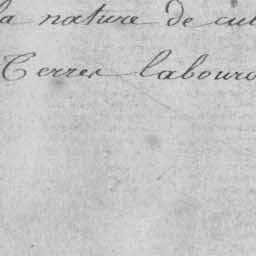 la nature de cul
Terres labour